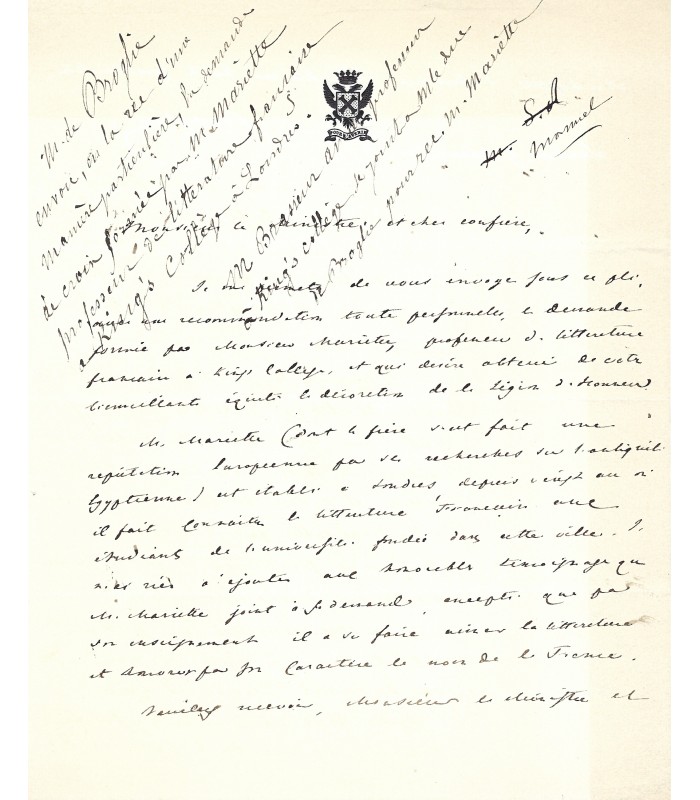 M. de Broglie
envoie, en la
manière particulière, la demande
de croix formée par M. Mariette
professeur de littérature française
à King's College à Londres.
M. Brasseur professeur
King's collège se joint à M. le duc
de Broglie pour rec. M. Mariette
POUR L'AVENIR
M. S. A
Manuel
Monsieur le Ministre et cher confrère,
Je me permets de vous envoyer sous ce pli,
avec une recommandation toute personnelle, la demande
formée par Monsieur Mariette, professeur de littérature
française à King's College, et qui désire obtenir de votre
bienveillante équité la décoration de la Légion d'honneur.
M. Mariette (dont le frère s'est fait une
réputation Européenne par ses recherches sur l'antiquité
Egyptienne) est établi à Londres depuis vingt ans où
il fait connaître la littérature Française aux
étudiants de l'université fondée dans cette ville. Je
n'ai rien à ajouter aux honorables témoignages que
M. Mariette joint à sa demande, excepté que par
son enseignement il a su faire aimer la littérature
et honorer par son caractère le nom de la France.
Veuillez recevoir, Monsieur le Ministre et